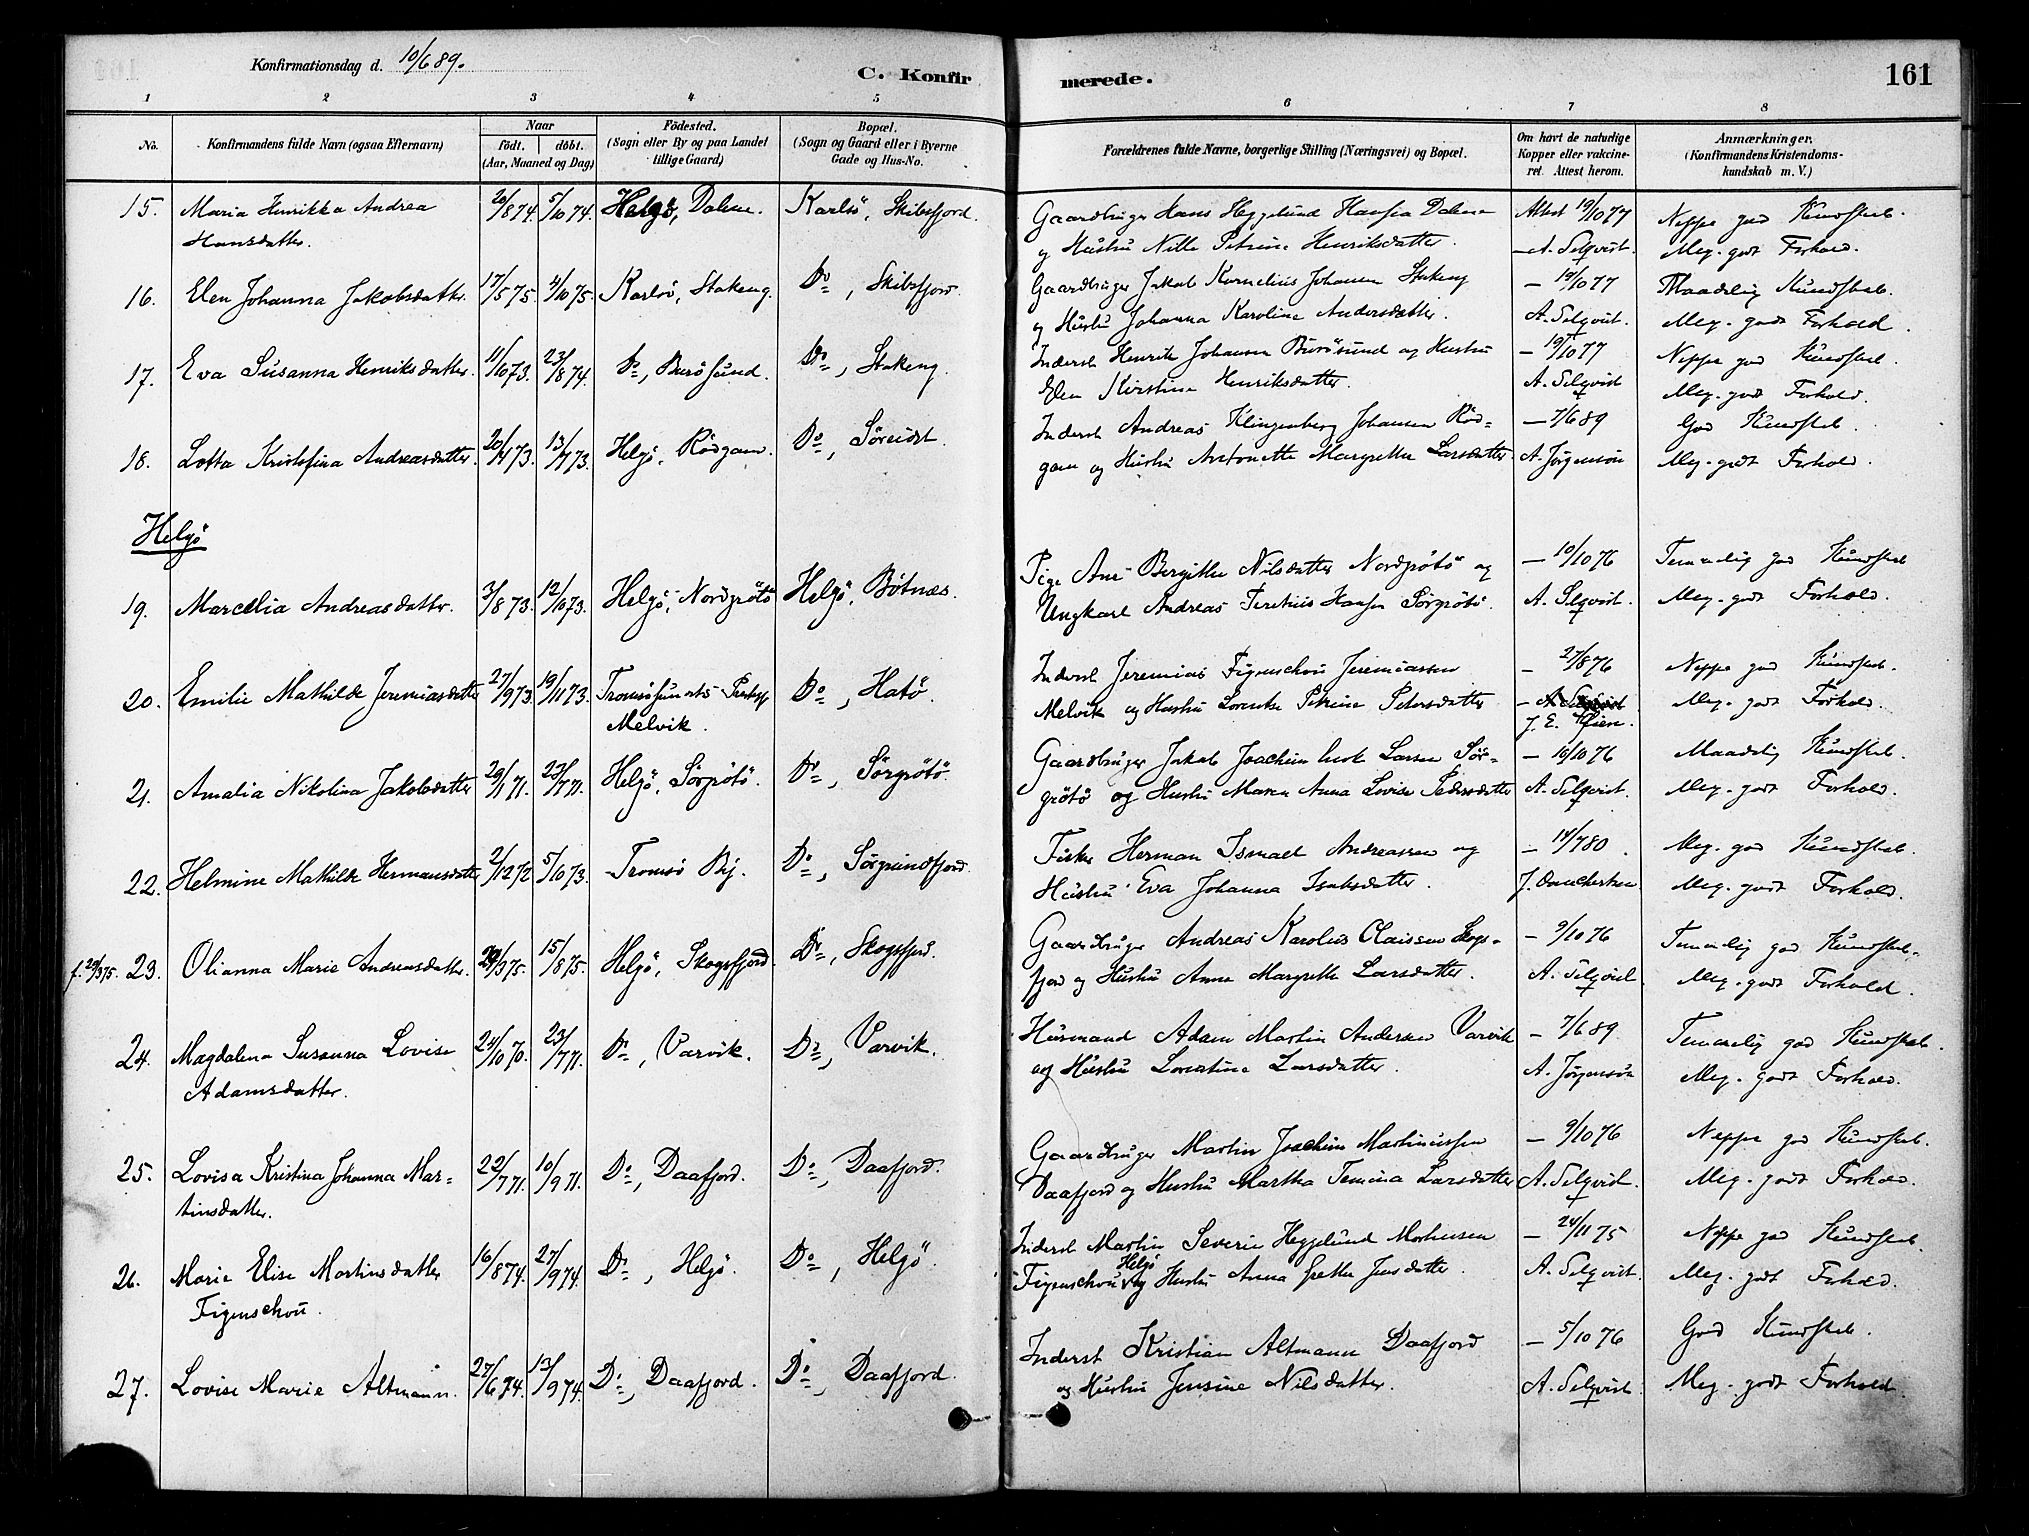 Konfirmationsdag d. 10/6 89.
C. Konfirmerede.
161
1 2 3 4 5 6 7 8
No.
Konfirmandens fulde Navn (ogsaa Efternavn)
Naar
födt. döbt.
(Aar, Maaned og Dag)
Födested.
(Sogn eller By og paa Landet
tillige Gaard)
Bopæl.
(Sogn og Gaard eller i Byerne
Gade og Hus-No.
Forældrenes fulde Navne, borgerlige Stilling (Næringsvei) og Bopæl.
Om havt de naturlige
Kopper eller vakcine-
ret. Attest herom.
Anmærkninger.
(Konfirmandens Kristendoms-
kundskab m. V.)
15. Maria Henrikka Andrea 20/8 74. 5/10 74. Helgö, Dalene. Karlsö, Skibsfjord. Gaardbruger Hans Heggelund Hansen Dalene Attest 19/10 77 Neppe god Kundskab.
Hansdatter. og Hustru Nille Petrine Henriksdatter. — A. Selqvist. Meg. godt Forhold.
16. Elen Johanna Jakobsdatter. 17/5 75. 4/10 75. Karlsö, Stakeng. Do, Skibsfjord. Gaardbruger Jakob Kornelius Johansen Stakeng — 19/10 77 Maadelig Kundskab.
og Hustru Johanna Karoline Andersdatter. A. Selqvist. Meg. godt Forhold.
17. Eva Susanna Henriksdatter. 11/10 73. 23/8 74. Do, Burösund. Do, Stakeng. Inderst Henrik Johansen Burösund og Hustru — 19/10 77 Neppe god Kundskab.
Elen Kirstine Henriksdatter. A. Selqvist Meg. godt Forhold.
18. Lotta Kristofina Andreasdatter. 20/4 73. 13/7 73. Helgö, Rödgam. Do, Söreidet. Inderst Andreas Klingenberg Johansen Röd- — 7/6 89 God Kundskab.
gam og Hustru Antonette Margrethe Larsdatter A. Jörgensön Meg. godt Forhold.
Helgö
19. Marcelia Andreasdatter. 3/8 73. 12/10 73. Helgö, Nordgrötö Helgö, Botnæs. Pige Ane Bergitte Nilsdatter Nordgrötö og — 10/10 76 Temmelig god Kundskab
Ungkarl Andreas Teretius Hansen Sörgrötö. A. Selqvist. Meg. godt Forhold.
20. Emilie Mathilde Jeremiasdatter 27/9 73. 19/11 73. Tromsösunds Prestegj. Do, Hatö. Inderst Jeremias Figenschou Jeremiassen — 27/8 76 Neppe god Kundskab.
Melvik. Melvik og Hustru Lorentse Petrine Petersdatter — A. Selqvist Meg. godt Forhold.
21. Amalia Nikolina Jakobsdatter 29/1 71. 23/7 71. Helgö, Sörgrötö. Do, Sörgrötö. Gaardbruger Jakob Joachim Larsen Sör- — 10/10 76 Maadelig Kundskab.
grötö og Hustru Maren Anna Lovise Pedersdatter A. Selqvist. Meg. godt Forhold.
22. Helmine Mathilde Hermansdatter 2/12 72 5/10 73. Tromsö By. Do, Sörgrundfjord. Fisker Herman Ismael Andreassen og — 14/7 80. Meg. god Kundskab.
Hustru Eva Johanna Isaksdatter. Meg. godt Forhold.
f. 29/3 75. 23. Olianna Marie Andreasdatter. 29/3 75. 15/8 75. Helgö, Skogsfjord. Do, Skogsfjord. Gaardbruger Andreas Karolius Olaissen Skogs- — 9/10 76 Temmelig god Kundskab.
fjord og Hustru Anne Margrethe Larsdatter. A. Selqvist. Meg. godt Forhold.
24. Magdalena Susanna Lovise 24/10 70. 23/7 71. Do, Varvik. Do, Varvik. Husmand Adam Martin Andersen Varvik — 7/6 89 Temmelig god Kundskab.
Adamsdatter. og Hustru Lorentine Larsdatter. A. Jörgensön Meg. godt Forhold.
25. Lovisa Kristina Johanna Mar- 22/7 71. 10/9 71. Do, Daafjord. Do, Daafjord. Gaardbruger Martin Joachim Martinussen — 9/10 76 Neppe god Kundskab.
tinsdatter. Daafjord og Hustru Martha Temina Larsdatter A. Selqvist. Meg. godt Forhold.
26. Marie Elise Martinsdatter 16/8 74. 27/9 74. Do, Helgö. Do, Helgö. Inderst Martin Severin Heggelund Mortensen — 24/11 75 Neppe god Kundskab.
Figenschou. Figenschou Helgö og Hustru Anna Grethe Jensdatter. A. Selqvist. Meg. godt Forhold.
27. Lovise Marie Altmann. 27/6 74. 13/9 74. Do, Daafjord. Do, Daafjord. Inderst Kristian Altmann Daafjord — 5/10 76 God Kundskab.
og Hustru Jensine Nilsdatter. A. Selqvist. Meg. godt Forhold.